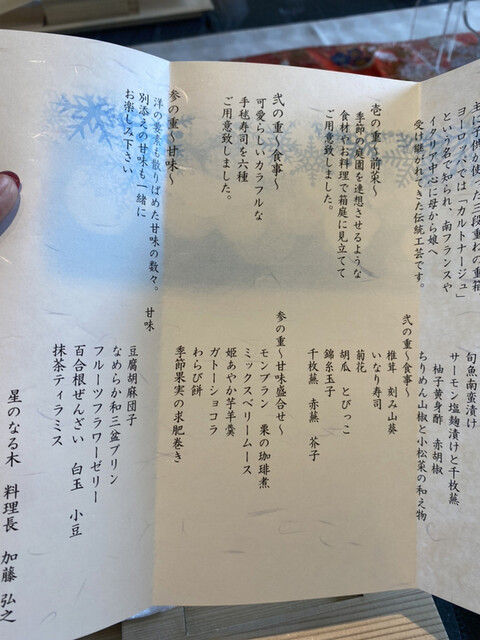 主に子供が使った三段重ねの重箱
ヨーロッパでは「カルトナージュ」
という名で知られ、南フランスや
イタリア中心に母から娘へ
受け継がれてきた伝統工芸です。
壱の重〜前菜〜
季節の庭園を連想させるような
食材やお料理で箱庭に見立てて
ご用意致しました。
弐の重〜食事〜
可愛らしいカラフルな
手毬寿司を六種
ご用意致しました。
参の重〜甘味〜
洋の要素も散りばめた甘味の数々。
別添えの甘味も一緒に
お楽しみ下さい
旬魚南蛮漬け
サーモン塩麹漬けと千枚蕪
柚子黄身酢 赤胡椒
ちりめん山椒と小松菜の和え物
弐の重〜食事〜
椎茸 刻み山葵
いなり寿司
菊花
胡瓜 とびっこ
錦糸玉子
千枚蕪 赤蕪 芥子
参の重〜甘味盛合せ〜
モンブラン 栗の珈琲煮
ミックスベリームース
姫あやか芋羊羹
ガトーショコラ
わらび餅
季節果実の求肥巻き
甘味
豆腐胡麻団子
なめらか和三盆プリン
フルーツフラワーゼリー
百合根ぜんざい 白玉 小豆
抹茶ティラミス
星のなる木 料理長 加藤 弘之